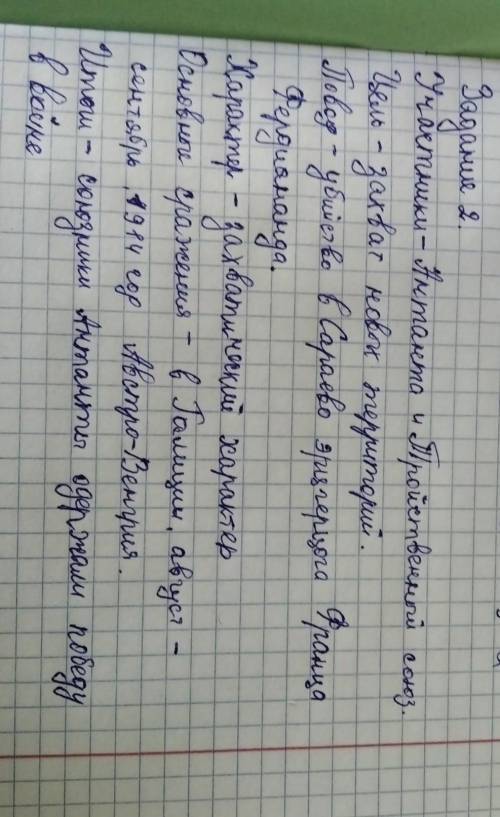 Задание 2.
Участники - Антанта и Тройственной союз.
Цель - захват новых территорий.
Повод - убийство в Сараево эрцгерцога Франца
Фердинанда.
Характер - захватический характер
Основное сражения - в Галиции, август -
сентябрь, 1914 гор Австро-Венгрия.
Итоги - союзники Антанты одержали победу
в войне